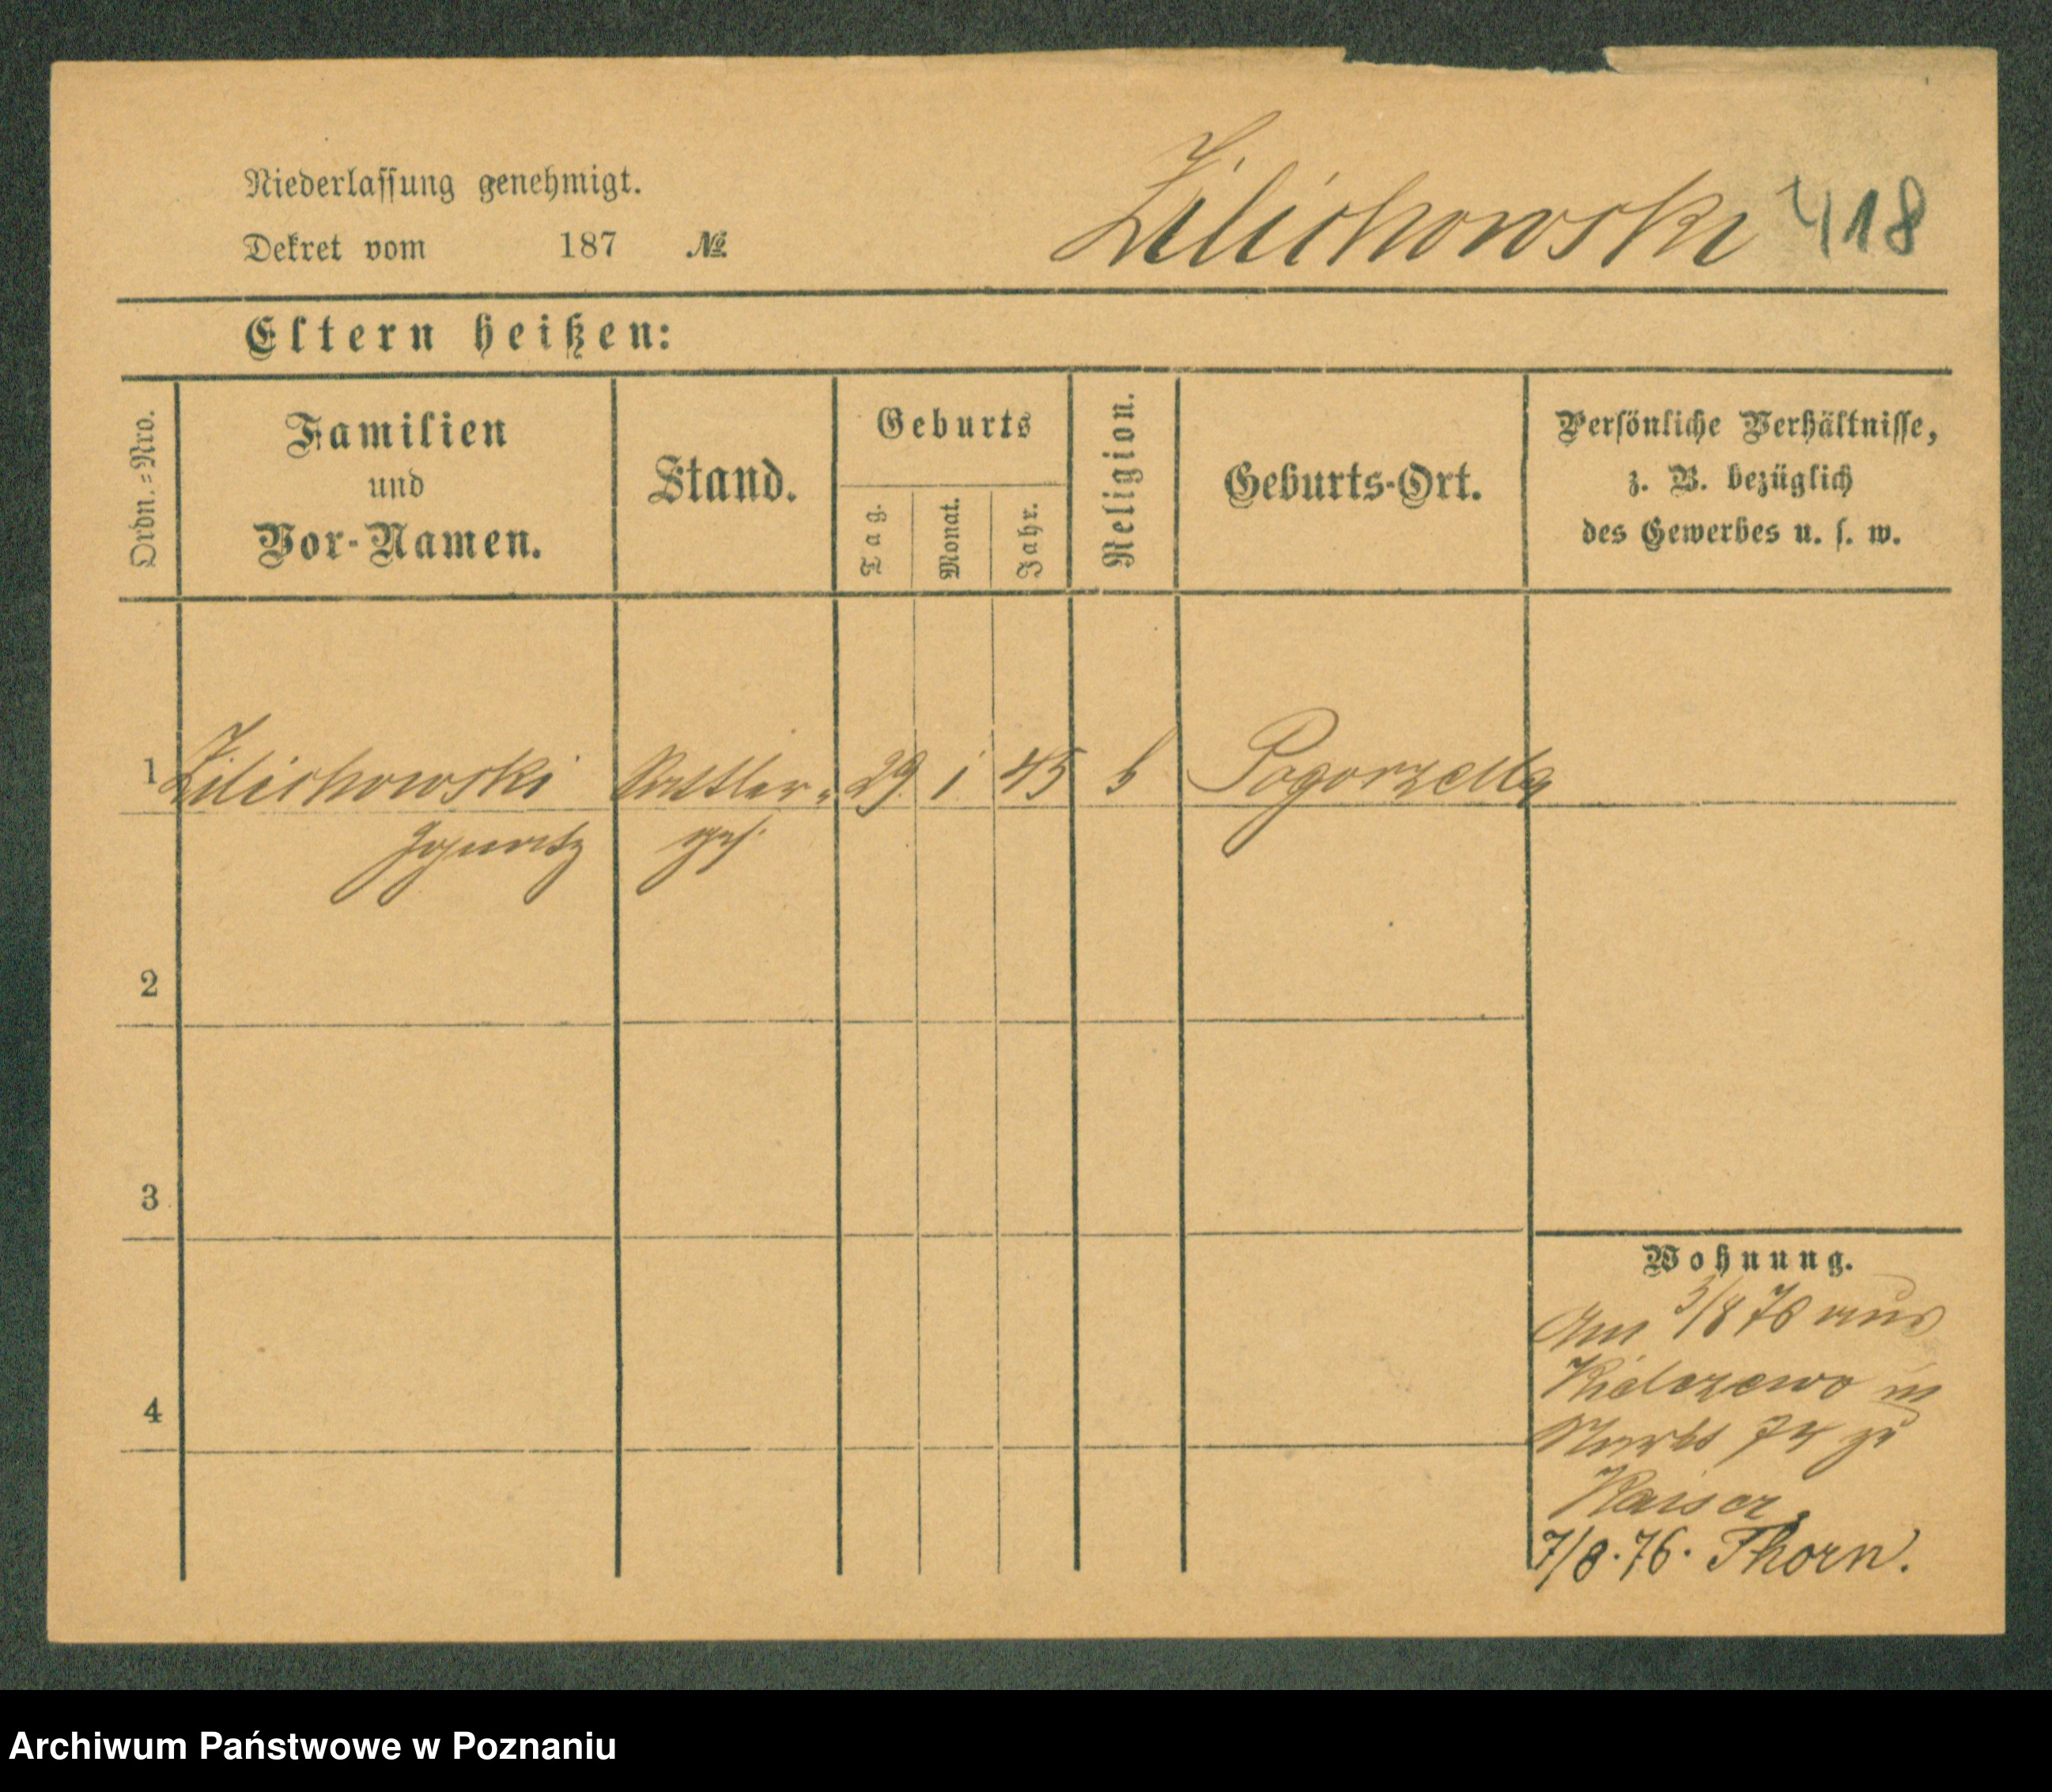 Niederlassung genehmigt.
Dekret vom 187 №
Zilichowski 418
Eltern heißen:
Ordn.=Nro.
Familien
und
Vor-Namen.
Stand.
Geburts
Tag.
Monat.
Jahr.
Religion.
Geburts-Ort.
Persönliche Verhältnisse,
z. B. bezüglich
des Gewerbes u. s. w.
1 Zilichowski Sattler- 29 1 45 k Pogorzella
Ignatz ges.
2
3
4
Wohnung.
Am 3/8 76 aus
Kielczewo in
74 zu
Kaiser,
7/8.76. Thorn.
Archiwum Państwowe w Poznaniu